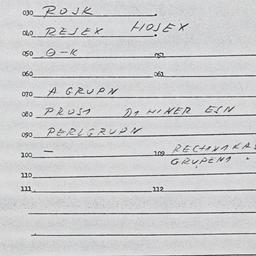 030 ROJK
040 REJEX HOJEX
050 O-K 051
060 061
070 A GRUPN
080 PROST D1 HINER ESN
090 PERLGRUPN
100 - 109 RECHANKAS
GRUPEN1
110
111 112